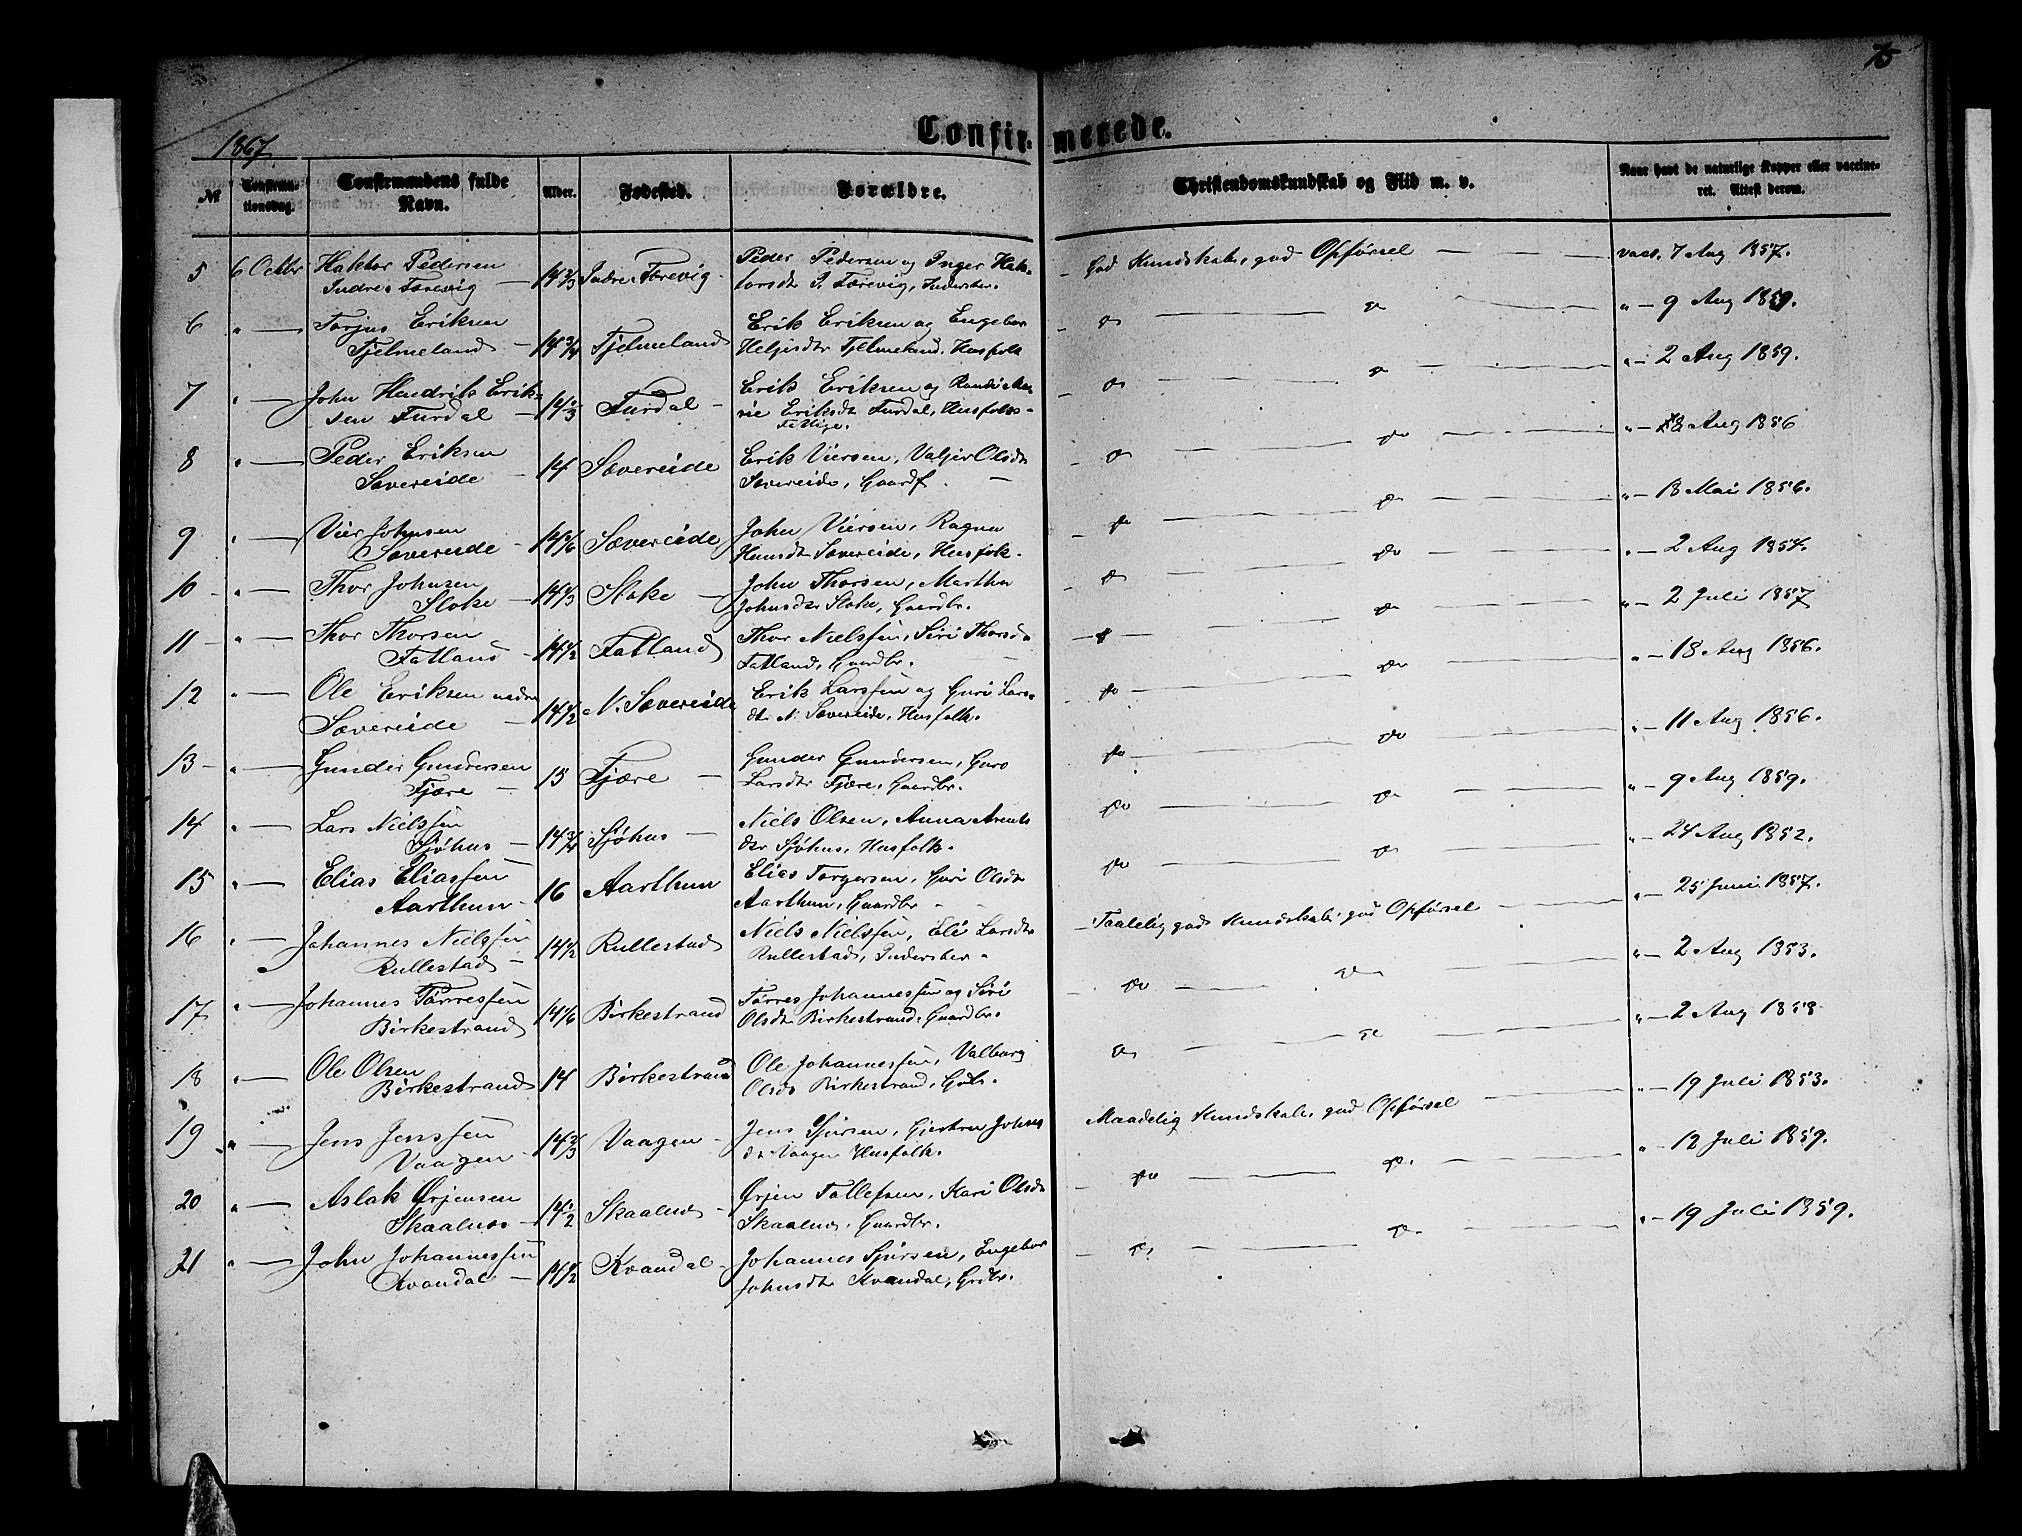 75
1867.
Confirmerede.
№ Confirmationsdag. Confirmandens fulde Navn. Alder. Fødested. Forældre. Christendomskundskab og Flid m. v. Naar havt de naturlige Kopper eller vaccineret. Attest derom.
5 6 Octbr Haktor Pedersen 14 2/3 Indre Færevig Peder Pedersen og Inger Hak- God Kundskab, god Opførsel vacc. 7 Aug 1857.
Indre Færevig torsdtr I. Færevig, Inderster.
6 " Torjus Eriksen 14 3/4 Fjelmeland Erik Eriksen og Engebor do do " 9 Aug 1859.
Fjelmeland Helgesdtr Fjelmeland, Husfolk
7 " John Hendrik Erik- 14 1/3 Furdal Erik Eriksen og Randi Ma- do do " 2 Aug 1859.
sen Furdal rie Eriksdtr Furdal, Husfolk
Fattige.
8 " Peder Eriksen 14 Sævereide Erik Viersen, Valgier Olsdtr do do " 18 Aug 1856
Sævereide Sævereide, Gaardf.
9 " Vier Johnsen 14 5/6 Sævereide John Viersen, Ragna do do " 18 Mai 1856.
Sævereide Hansdtr Sævereide, Husfolk.
10 " Thor Johnsen 14 1/3 Sloke John Thorsen, Martha do do " 2 Aug 1854.
Sloke Johnsdtr Sloke, Gaardbr.
11 " Thor Thorsen 14 1/2 Fatland Thor Nielssen, Siri Thorsdtr do do " 2 Juli 1857
Fatland Fatland, Gaardbr.
12 " Ole Eriksen nedre 14 1/2 N. Sævereide Erik Larssen og Guri Lars- do do " 18 Aug 1856.
Sævereide dtr N. Sævereide, Husfolk.
13 " Gunder Gundersen 15 Fjære Gunder Gundersen, Guro do do " 11 Aug 1856.
Fjære Larsdtr Fjære, Gaardbr.
14 " Lars Nielssen 14 3/4 Sjøhus Niels Olsen, Anna Arents do do " 9 Aug 1859.
Sjøhus dtr Sjøhus, Husfolk.
15 " Elias Eliassen 16 Aarthun Elias Torgersen, Guri Olsdtr do do " 24 Aug 1852.
Aarthun Aarthun, Gaardbr
16 " Johannes Nielssen 14 1/2 Rullestad Niels Nielssen, Eli Larsdtr Taalelig god Kundskab, god Opførsel " 25 Juni 1857.
Rullestad Rullestad, Inderster.
17 " Johannes Tørressen 14 1/6 Birkestrand Tørres Johannessen og Siri do do " 2 Aug 1853.
Birkestrand Olsdtr Birkestrand, Gaardbr.
18 " Ole Olsen 14 Birkestrand Ole Johannessen, Valborg do do " 2 Aug 1858
Birkestrand Olsdtr Birkestrand, Gbr.
19 " Jens Jenssen 14 2/3 Vaagen Jens Sjursen, Gjertru Johnsdtr Maadelig Kundskab, god Opførsel " 19 Juli 1853.
Vaagen Vaagen Husfolk.
20 " Aslak Ørjensen 14 1/2 Skaalnæs Ørjen Tollefsen, Kari Olsdtr do do " 12 Juli 1859.
Skaalnæs Skaalnæs, Gaardbr.
21 " John Johannessen 14 1/2 Kvandal Johannes Sjursen, Engebor do do " 19 Juli 1859.
Kvandal Johnsdtr Kvandal, Grdbr.